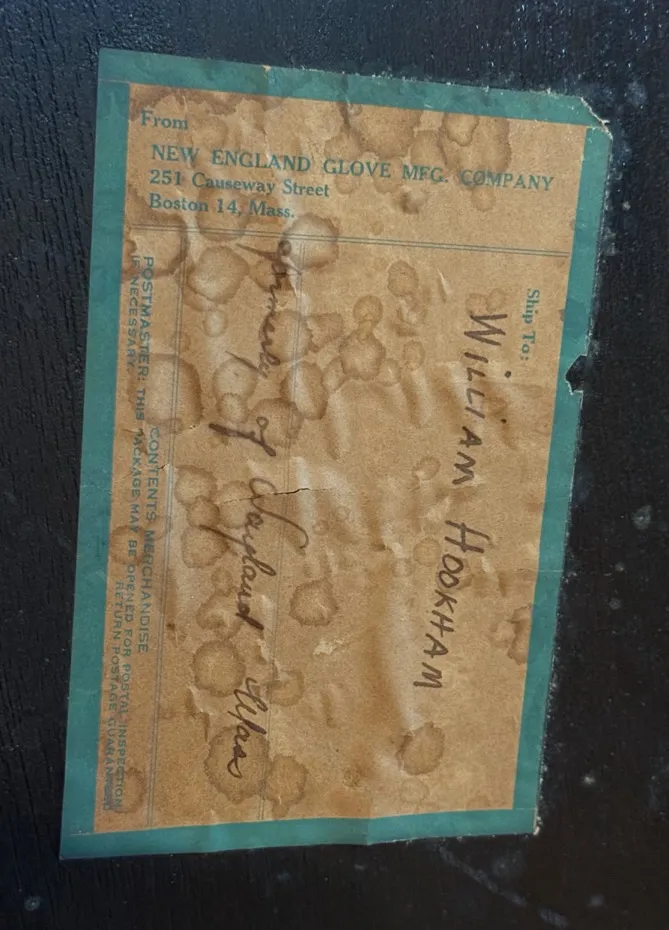 From
NEW ENGLAND GLOVE MFG. COMPANY
251 Causeway Street
Boston 14, Mass.
Ship To:
WILLIAM HOOKHAM
formerly of Wayland Mass
CONTENTS MERCHANDISE
POSTMASTER: THIS PACKAGE MAY BE OPENED FOR POSTAL INSPECTION
IF NECESSARY. RETURN POSTAGE GUARANTEED